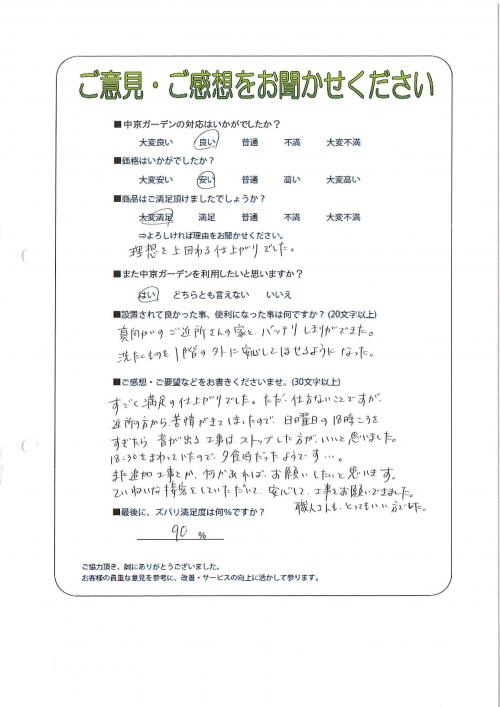 ご意見・ご感想をお聞かせください
■中京ガーデンの対応はいかがでしたか？
大変良い　良い　普通　不満　大変不満
■価格はいかがでしたか？
大変安い　安い　普通　高い　大変高い
■商品はご満足頂けましたでしょうか？
大変満足　満足　普通　不満　大変不満
⇒よろしければ理由をお聞かせください。
理想を上回わる仕上がりでした。
■また中京ガーデンを利用したいと思いますか？
はい　どちらとも言えない　いいえ
■設置されて良かった事、便利になった事は何ですか？(20文字以上)
真向かいのご近所さんの家と、バッチリしきりができた。
洗たくものを1階の外に安心してほせるようになった。
■ご感想・ご要望などをお書きくださいませ。(30文字以上)
すごく満足の仕上がりでした。ただ、仕方ないことですが、
近所の方から苦情がきてしまったので、日曜日の18時ころを
すぎたら、音が出る工事はストップした方が、いいと思いました。
18:30をまわっていたので、夕食時だったようです…。
また追加工事とか、何かあれば、お願いしたいと思います。
ていねいな接客をしていただいて、安心して、工事をお願いできました。
職人さんも、とってもいい方でした。
■最後に、ズバリ満足度は何％ですか？
90 %
ご協力頂き、誠にありがとうございました。
お客様の貴重な意見を参考に、改善・サービスの向上に活かして参ります。